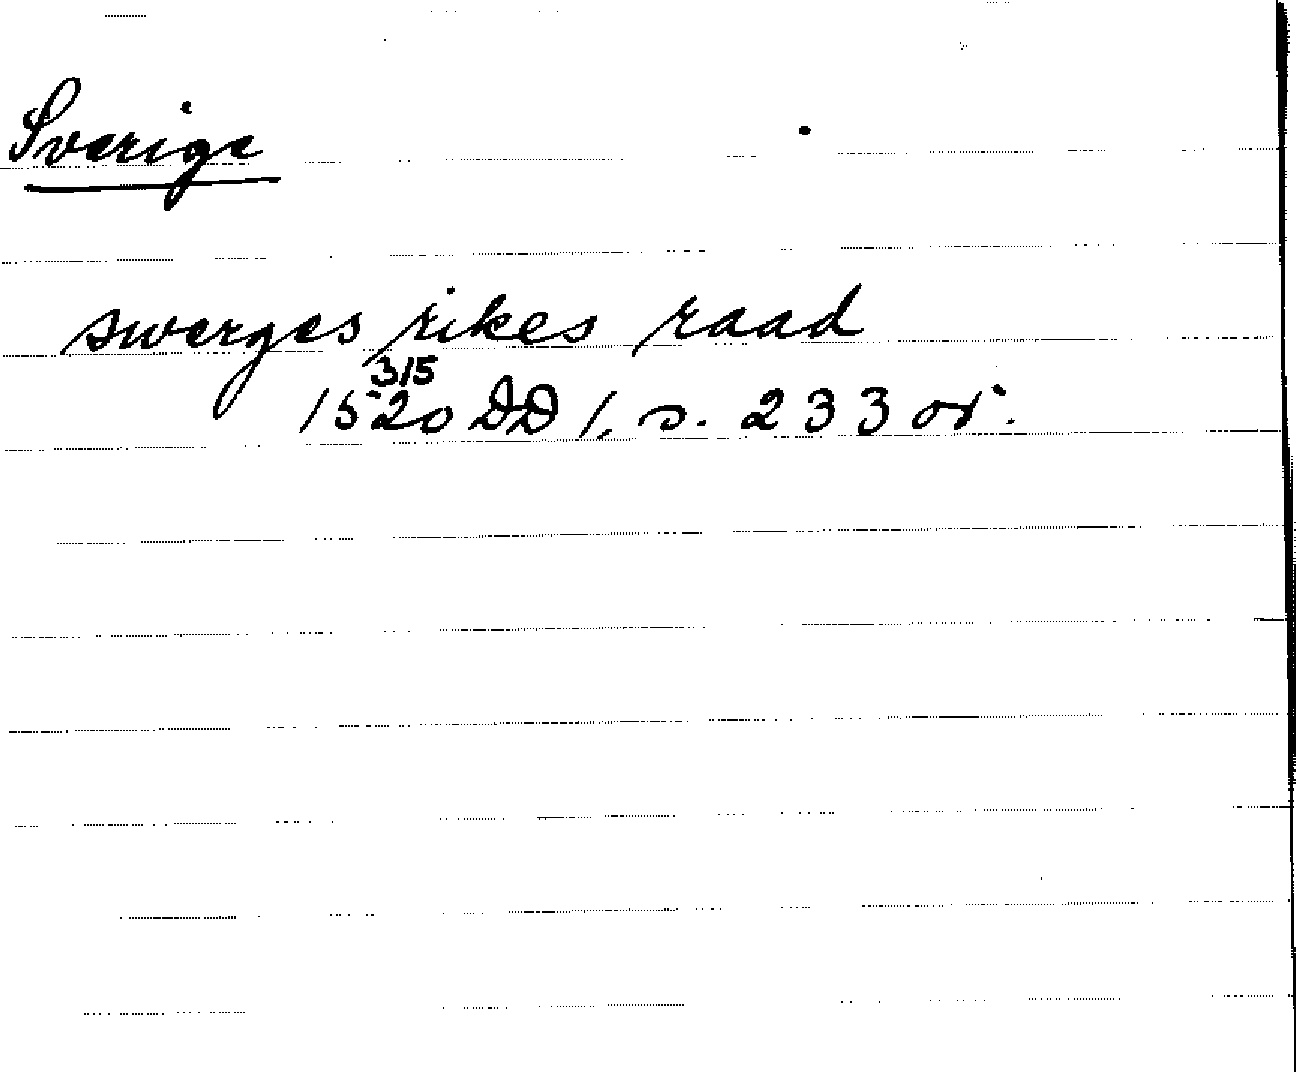 Sverige
swerges rikes raad
3/5
1520 DD 1, s. 233 or.